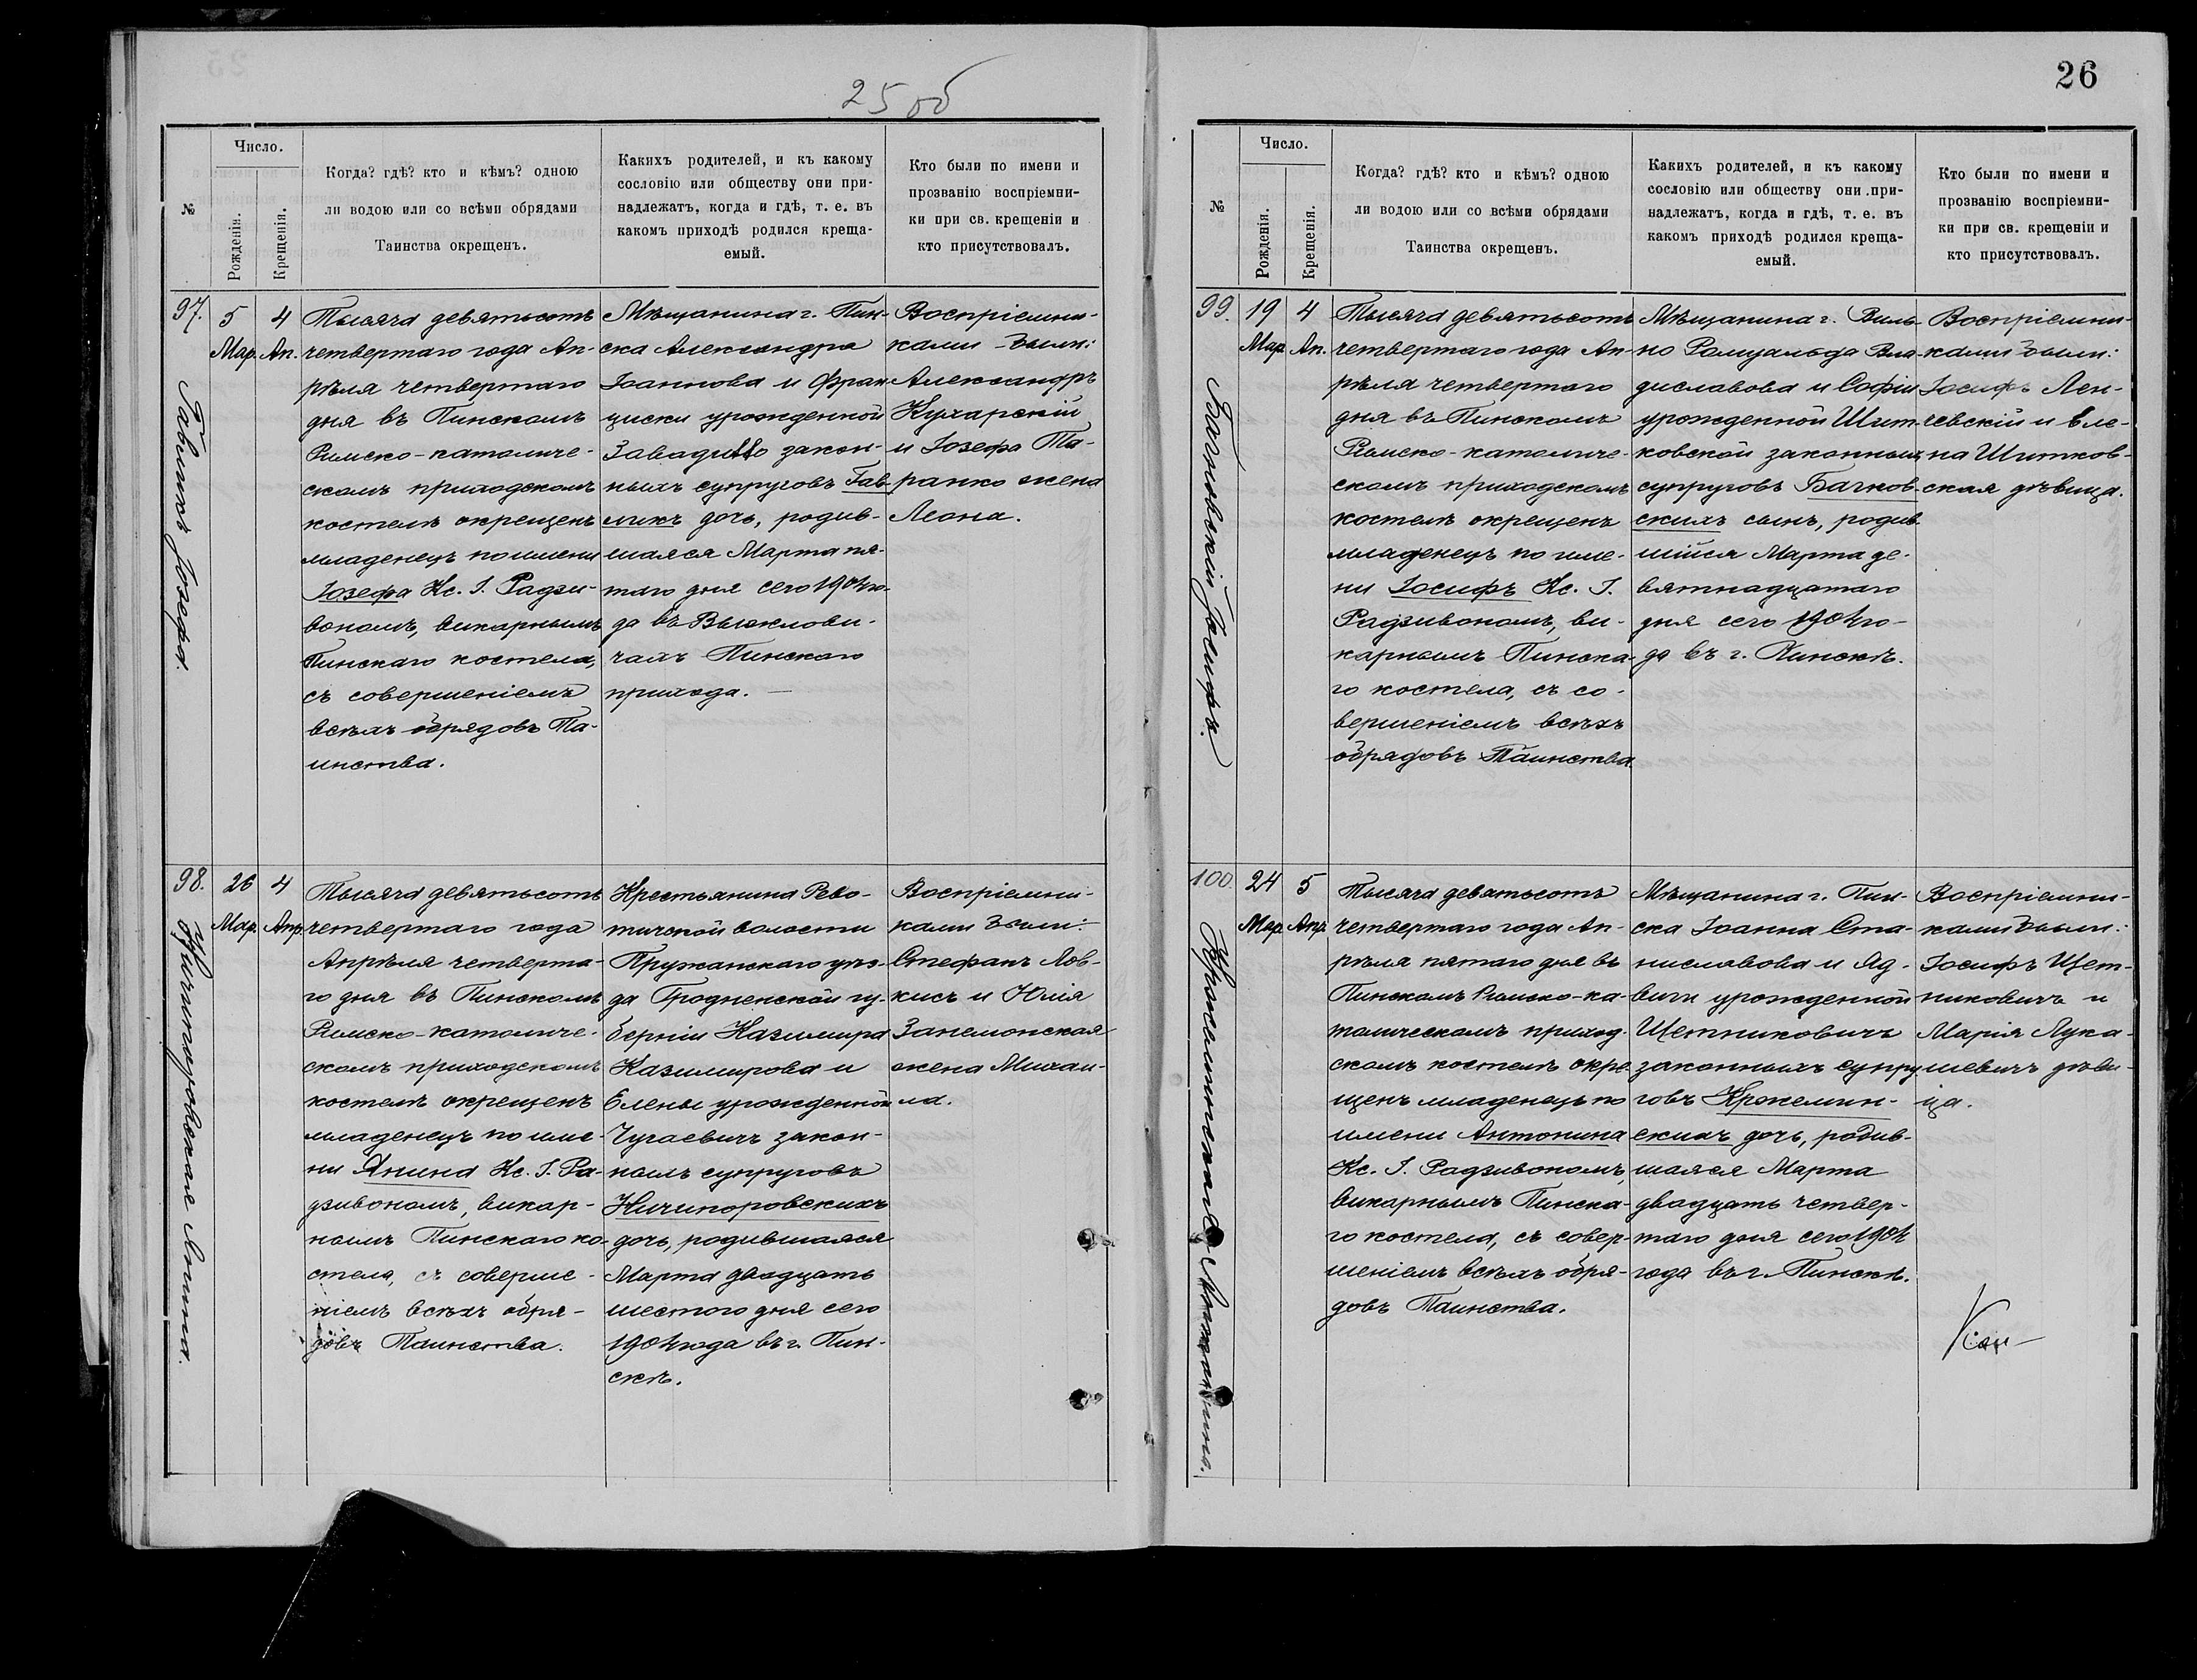 25 об
№
Число.
Рожденія.
Крещенія.
Когда? гдѣ? кто и кѣмъ? одною
ли водою или со всѣми обрядами
Таинства окрещенъ.
Какихъ родителей, и къ какому
сословію или обществу они при-
надлежатъ, когда и гдѣ, т. е. въ
какомъ приходѣ родился креща-
емый.
Кто были по имени и
прозванію воспріемни-
ки при св. крещеніи и
кто присутствовалъ.
97.
Гавликъ Іозефа.
5
Мар.
4
Ап.
Тысяча девятьсотъ
четвертаго года Ап-
рѣля четвертаго
дня въ Пинскомъ
Римско-католиче-
скомъ приходскомъ
костелѣ окрещенъ
младенецъ по имени
Іозефа Кс. І. Радзи-
вономъ, викарнымъ
Пинскаго костела,
съ совершеніемъ
всѣхъ обрядовъ Та-
инства.
Мѣщанина г. Пин-
ска Александра
Іоаннова и Фран-
циски урожденной
Завадилло закон-
ныхъ супруговъ Гав-
ликъ дочь, родив-
шаяся Марта пя-
таго дня сего 1904 го-
да въ Выжлови-
чахъ Пинскаго
прихода. —
Воспріемни-
ками были:
Александръ
Кухарскій
и Іозефа Та-
ранко жена
Леона.
98.
Ничипоровская Янина.
26
Мар.
4
Апр.
Тысяча девятьсотъ
четвертаго года
Апрѣля четверта-
го дня въ Пинскомъ
Римско-католиче-
скомъ приходскомъ
костелѣ окрещенъ
младенецъ по име-
ни Янина Кс. І. Ра-
дзивономъ, викар-
нымъ Пинскаго ко-
стела, съ соверше-
ніемъ всѣхъ обря-
довъ Таинства.
Крестьянина Рево-
тичской волости
Пружанскаго уѣз-
да Гродненской гу-
берніи Казимира
Казимирова и
Елены урожденной
Чугаевичъ закон-
ныхъ супруговъ
Ничипоровскихъ
дочь, родившаяся
Марта двадцать
шестого дня сего
1904 года въ г. Пин-
скѣ.
Воспріемни-
ками были:
Стефанъ Яов-
кисъ и Юлія
Занемонская
жена Михаи-
ла.
26
№
Число.
Рожденія.
Крещенія.
Когда? гдѣ? кто и кѣмъ? одною
ли водою или со всѣми обрядами
Таинства окрещенъ.
Какихъ родителей, и къ какому
сословію или обществу они при-
надлежатъ, когда и гдѣ, т. е. въ
какомъ приходѣ родился креща-
емый.
Кто были по имени и
прозванію воспріемни-
ки при св. крещеніи и
кто присутствовалъ.
99.
Бачковскій Іосифъ.
19
Мар.
4
Ап.
Тысяча девятьсотъ
четвертаго года Ап-
рѣля четвертаго
дня въ Пинскомъ
Римско-католиче-
скомъ приходскомъ
костелѣ окрещенъ
младенецъ по име-
ни Іосифъ Кс. І.
Радзивономъ, ви-
карнымъ Пинска-
го костела, съ со-
вершеніемъ всѣхъ
обрядовъ Таинства.
Мѣщанина г. Виль-
но Ромуальда Вла-
диславова и Софіи
урожденной Шит-
ковской законныхъ
супруговъ Бачков-
скихъ сынъ, родив-
шійся Марта де-
вятнадцатаго
дня сего 1904 го-
да въ г. Пинскѣ.
Воспріемни-
ками были:
Іосифъ Лен-
чевскій и Еле-
на Шитков-
ская дѣвица.
100.
Кржеминская Антонина.
24
Мар.
5
Апр.
Тысяча девятьсотъ
четвертаго года Ап-
рѣля пятаго дня въ
Пинскомъ Римско-ка-
толическомъ приход-
скомъ костелѣ окре-
щенъ младенецъ по
имени Антонина
Кс. І. Радзивономъ,
викарнымъ Пинска-
го костела, съ совер-
шеніемъ всѣхъ обря-
довъ Таинства.
Мѣщанина г. Пин-
ска Іоанна Ста-
ниславова и Яд-
виги урожденной
Щетниковичъ
законныхъ супру-
говъ Кржемин-
скихъ дочь, родив-
шаяся Марта
двадцать четвер-
таго дня сего 1904
года въ г. Пинскѣ.
Воспріемни-
ками были:
Іосифъ Щет-
никовичъ и
Марія Лука-
шевичъ дѣви-
ца.